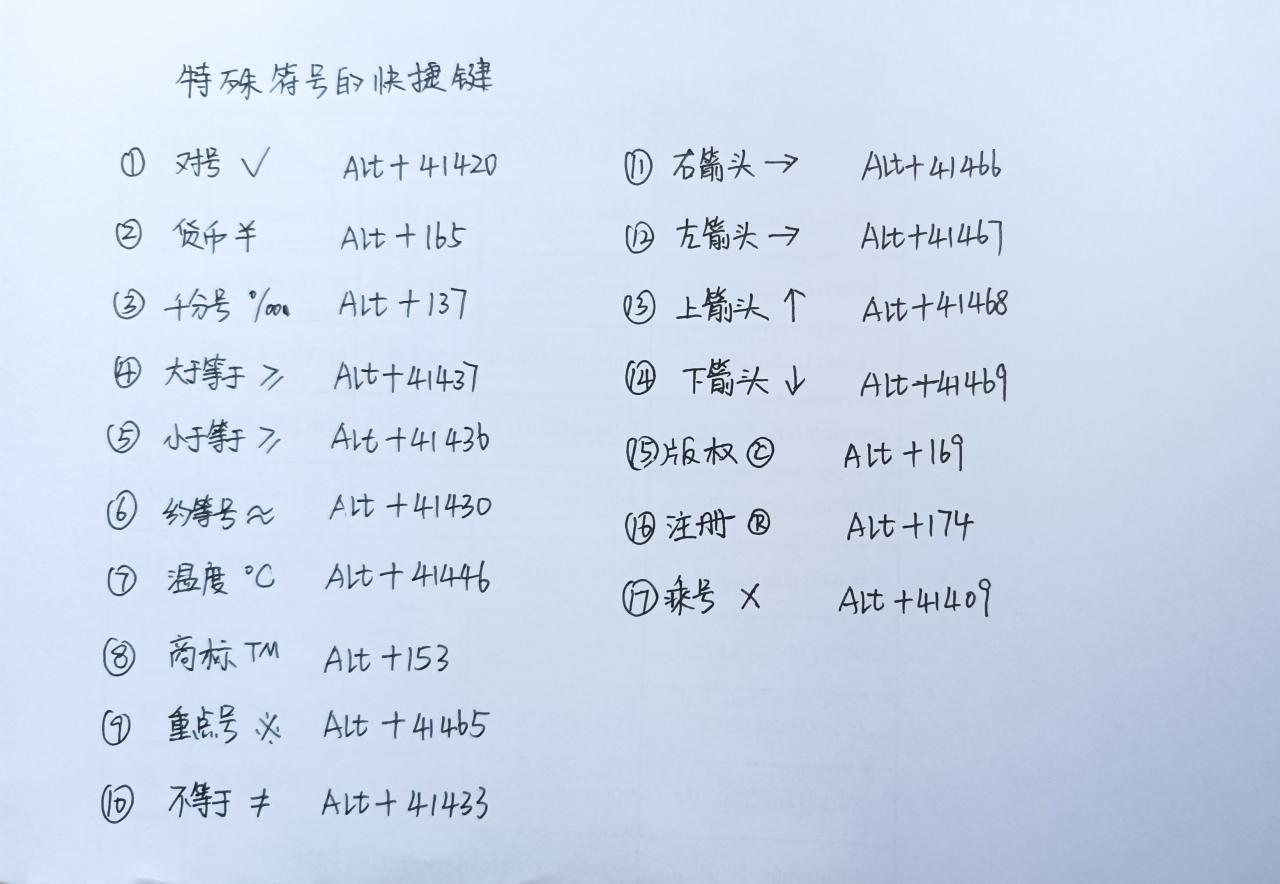 特殊符号的快捷键
① 对号 √ Alt+41420
② 货币 ¥ Alt+165
③ 千分号 ‰ Alt+137
④ 大于等于 ≥ Alt+41437
⑤ 小于等于 ≥ Alt+41436
⑥ 约等号 ≈ Alt+41430
⑦ 温度 °C Alt+41446
⑧ 商标 TM Alt+153
⑨ 重点号 ※ Alt+41465
⑩ 不等于 ≠ Alt+41433
⑪ 右箭头 → Alt+41466
⑫ 左箭头 → Alt+41467
⑬ 上箭头 ↑ Alt+41468
⑭ 下箭头 ↓ Alt+41469
⑮ 版权 © Alt+169
⑯ 注册 ® Alt+174
⑰ 乘号 × Alt+41409